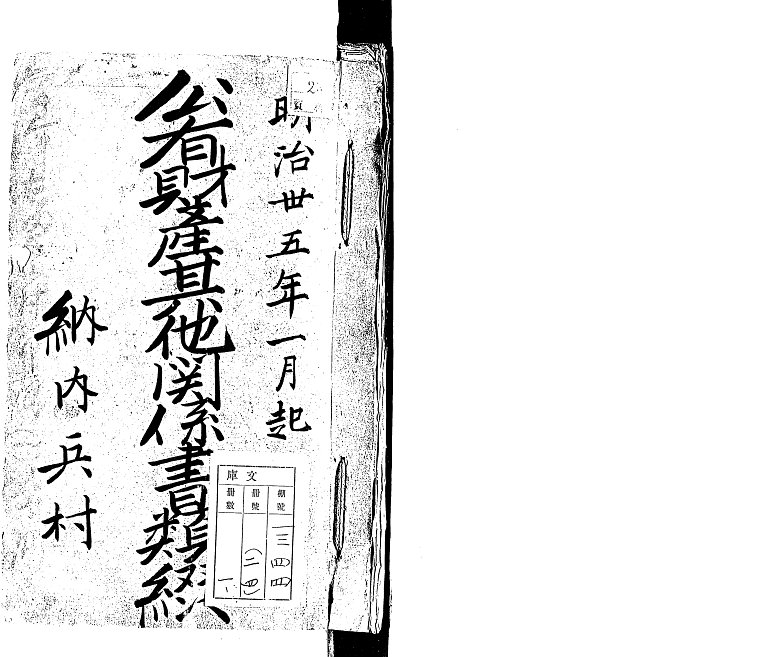 2
明治卅五年一月起
公有財産其他関係書類綴
納内兵村
文庫
棚號 一三四四
冊號 (二四)
冊數 一